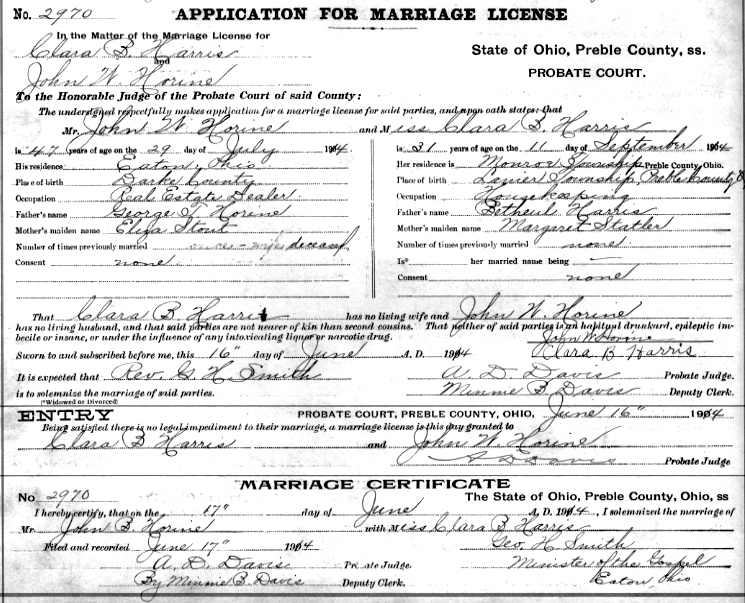 No. 2970 APPLICATION FOR MARRIAGE LICENSE
In the Matter of the Marriage License for
Clara B. Harris
and
John W. Horine
State of Ohio, Preble County, ss.
PROBATE COURT.
To the Honorable Judge of the Probate Court of said County:
The undersigned respectfully makes application for a marriage license for said parties, and upon oath states: that
Mr. John W Horine and Miss Clara B. Harris
is 47 years of age on the 29 day of July 1904
His residence is Eaton, Ohio
Place of birth Darke County
Occupation Real Estate Dealer
Father's name George T. Horine
Mother's maiden name Eliza Stout
Number of times previously married once - wife deceased
Consent none
is 31 years of age on the 11 day of September 1904
Her residence is Monroe Township, Preble County, Ohio.
Place of birth Lanier Township, Preble County O
Occupation Housekeeping
Father's name Betheul Harris
Mother's maiden name Margaret Statler
Number of times previously married none
Is* her married name being —
Consent none
That Clara B. Harris has no living wife and John W. Horine
has no living husband, and that said parties are not nearer of kin than second cousins. That neither of said parties is an habitual drunkard, epileptic im-
becile or insane, or under the influence of any intoxicating liquor or narcotic drug.
John W Horine
Sworn to and subscribed before me, this 16" day of June A. D. 1904 Clara B Harris
It is expected that Rev. G. H. Smith A. D. Davis Probate Judge.
is to solemnize the marriage of said parties. Minnie B. Davis Deputy Clerk.
(*Widowed or Divorced)
ENTRY PROBATE COURT, PREBLE COUNTY, OHIO, June 16" 1904
Being satisfied there is no legal impediment to their marriage, a marriage license is this day granted to
Clara B Harris and John W. Horine
A D Davis Probate Judge
MARRIAGE CERTIFICATE
No 2970 The State of Ohio, Preble County, ss
I hereby certify, that on the 17" day of June A. D. 1904, I solemnized the marriage of
Mr. John B. Horine with Miss Clara B. Harris
Filed and recorded June 17" 1904 Geo. H. Smith
A. D. Davis Probate Judge. Minister of the Gospel
By Minnie B. Davis Deputy Clerk. Eaton, Ohio